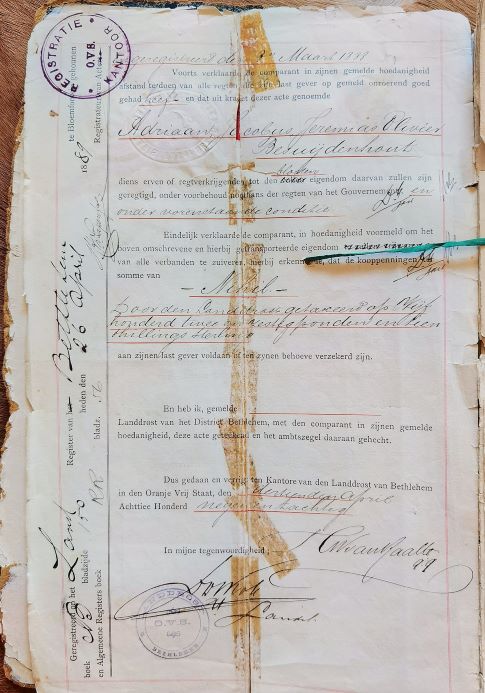 geregistreerd den Maart 18
Voorts verklaarde de comparant in zijnen gemelde hoedanigheid
afstand te doen van alle regten die zijn last gever op gemeld onroerend goed
gehad heeft en dat uit kragt dezer acte genoemde
Adriaan Jacobus Jeremias Olivier
Bezuijdenhout
diens erven of regtverkrijgenden tot den eigendom daarvan zullen zijn
geregtigd, onder voorbehoud nogthans der regten van het Gouvernement, en
onder voornstaande conditie.
Eindelijk verklaarde de comparant, in hoedanigheid voormeld om het
boven omschrevene en hierbij getransporteerde eigendom
van alle verbanden te zuiveren, hierbij erkennende, dat de kooppenningen ten
somme van
— Nihil —
Door den Landdrost getaxeerd op Vijf
honderd twee en zestig ponden en tien
shillings Sterling
aan zijnen last gever voldaan of ten zynen behoeve verzekerd zijn.
En heb ik, gemelde
Landdrost van het District Bethlehem, met den comparant in zijnen gemelde
hoedanigheid, deze acte geteekend en het ambtszegel daaraan gehecht.
Dus gedaan en verrigt ten Kantore van den Landdrost van Bethlehem
in den Oranje Vrij Staat, den April
Achttien Honderd negen en tachtig
In mijne tegenwoordigheid,
Landd.
REGISTRATIE KANTOOR
O.V.S.
te Bloemfontein gehouden
Registrateur van Acten
1889
Register van Bethlehem
heden den 26 April
Geregistreerd in het Land
boek bladzijde 150 bladz. 56
en Algemeene Registers boek RR
O.V.S.
BETHLEHEM